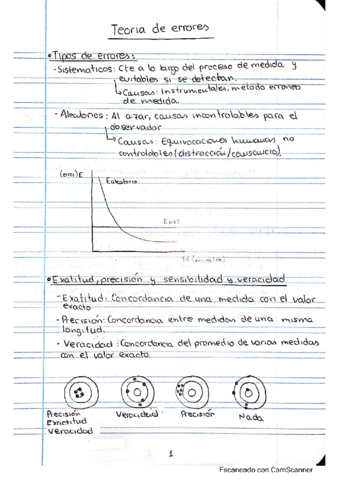 Teoria de errores
• Tipos de errores:
- Sistematicos: Cte a lo largo del proceso de medida y
evitables si se detectan.
↳ Causas: Instrumentales, metodo erroneo
de medida.
- Aleatorios: Al azar, causas incontrolables para el
observador
↳ Causas: Equivocaciones humanas no
controlables (distracción/causancio)
E
Esist
• Exatitud, precisión y sensibilidad y veracidad
- Exatitud: Concordancia de una medida con el valor
exacto
- Precisión: Concordancia entre medidas de una misma
longitud.
- Veracidad: Concordancia del promedio de varias medidas
con el valor exacto.
Precisión
Exactitud
Veracidad
Veracidad
Precisión
Nada
1
Escaneado con CamScanner